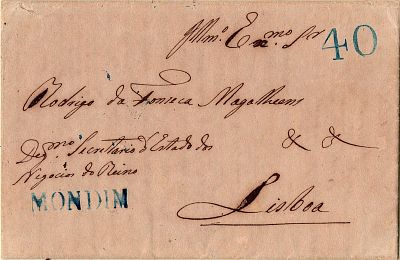 Illmo. Exmo. Snr
40
Rodrigo da Fonseca Magalhaens
Degmo. Secretario d'Estado dos & &
Negocios do Reino
MONDIM
Lisboa